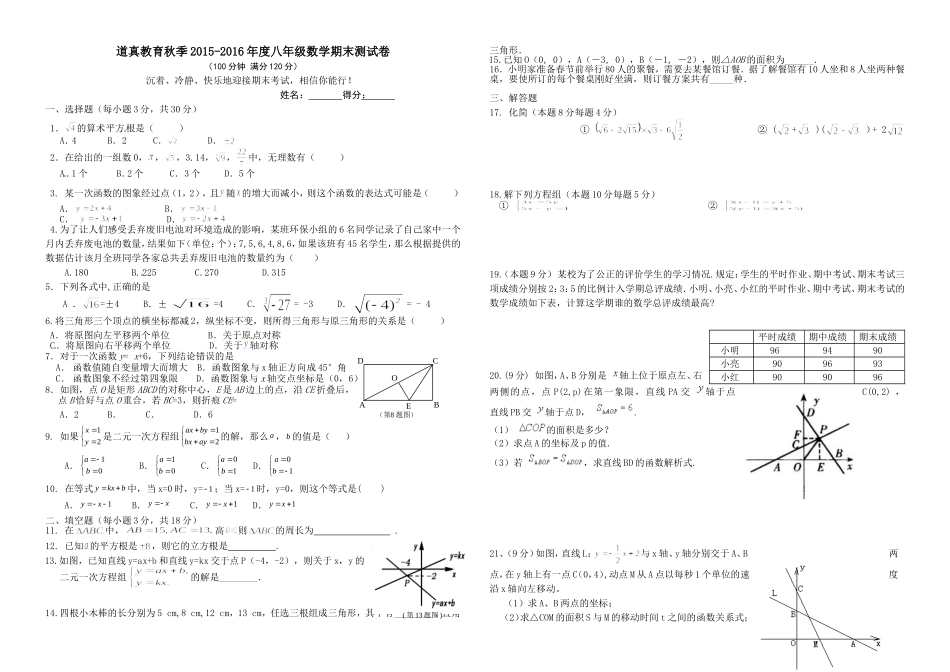 道真教育秋季 2015-2016 年度八年级数学期末测试卷
（100 分钟 满分 120 分）
沉着、冷静、快乐地迎接期末考试，相信你能行！
姓名：_______得分：______
一、选择题（每小题 3 分，共 30 分）
1．√4 的算术平方根是（ ）
A．4 B．2 C．√2 D．±√2
2．在给出的一组数 0，π，√5，3.14，∛9，22/7 中，无理数有（ ）
A．1 个 B．2 个 C．3 个 D．5 个
3．某一次函数的图象经过点（1，2），且 y 随 x 的增大而减小，则这个函数的表达式可能是（ ）
A．y=2x+4 B．y=3x-1
C．y=-3x+1 D．y=-2x+4
4.为了让人们感受丢弃废旧电池对环境造成的影响，某班环保小组的 6 名同学记录了自己家中一个
月内丢弃废电池的数量，结果如下(单位：个)：7,5,6,4,8,6,如果该班有 45 名学生，那么根据提供的
数据估计该月全班同学各家总共丢弃废旧电池的数量约为（ ）
A.180 B.225 C.270 D.315
5．下列各式中,正确的是
A．√16=±4 B．±√16=4 C．∛-27= -3 D．√(-4)²= - 4
6.将三角形三个顶点的横坐标都减 2，纵坐标不变，则所得三角形与原三角形的关系是（ ）
A．将原图向左平移两个单位 B．关于原点对称
C．将原图向右平移两个单位 D．关于 y 轴对称
7．对于一次函数 y= x+6，下列结论错误的是
A． 函数值随自变量增大而增大 B．函数图象与 x 轴正方向成 45°角
C． 函数图象不经过第四象限 D．函数图象与 x 轴交点坐标是（0，6）
8．如图，点 O 是矩形 ABCD 的对称中心，E 是 AB 边上的点，沿 CE 折叠后，
点 B 恰好与点 O 重合，若 BC=3，则折痕 CE=
A．2 B． C． D．6
D C
O
A E B
（第8题图）
9. 如果 {x=1 y=2 是二元一次方程组 {ax+by=1 bx+ay=2 的解，那么 a，b 的值是（ ）
A．{a=-1 b=0 B．{a=1 b=0 C．{a=0 b=1 D．{a=0 b=-1
10. 在等式 y=kx+b 中，当 x=0 时，y=-1；当 x=-1 时，y=0，则这个等式是( )
A．y=-x-1 B．y=-x C．y=-x+1 D．y=x+1
二、填空题（每小题 3 分，共 18 分）
11．在 △ABC 中，AB=15，AC=13，高 则 △ABC 的周长为________．
12．已知 a 的平方根是 ±8，则它的立方根是________．
13.如图，已知直线 y=ax+b 和直线 y=kx 交于点 P（-4，-2），则关于 x，y 的
二元一次方程组 {y=ax+b, y=kx. 的解是________．
y y=kx
-4
O x
P -2
y=ax+b
(第 13 题图)
14.四根小木棒的长分别为 5 cm,8 cm,12 cm，13 cm，任选三根组成三角形，其
三角形．
15.已知 O（0, 0），A（-3, 0），B（-1, -2），则△AOB 的面积为______．
16．小明家准备春节前举行 80 人的聚餐，需要去某餐馆订餐．据了解餐馆有 10 人坐和 8 人坐两种餐
桌，要使所订的每个餐桌刚好坐满，则订餐方案共有_____种．
三、解答题
17. 化简（本题 8 分每题 4 分）
① (√6-2√15)×√3-6√1/2 ② (√2+√3)(√2-√3)+ 2√12
18.解下列方程组（本题 10 分每题 5 分）
① ②
19.（本题 9 分）某校为了公正的评价学生的学习情况．规定：学生的平时作业、期中考试、期末考试三
项成绩分别按 2：3：5 的比例计入学期总评成绩．小明、小亮、小红的平时作业、期中考试、期末考试的
数学成绩如下表，计算这学期谁的数学总评成绩最高？
平时成绩 期中成绩 期末成绩
小明 96 94 90
小亮 90 96 93
小红 90 90 96
20.（9 分）如图，A、B 分别是 x 轴上位于原点左、右
两侧的点，点 P(2,p)在第一象限，直线 PA 交 y 轴于点 C(0,2)，
直线 PB 交 y 轴于点 D，S△AOP=6．
（1）△COP 的面积是多少？
（2）求点 A 的坐标及 p 的值.
（3）若 S△BOP=S△DOP，求直线 BD 的函数解析式.
y
D
F P
C
A O E B x
21、（9 分）如图，直线 L：y=-1/2x+2 与 x 轴、y 轴分别交于 A、B 两
点，在 y 轴上有一点 C（0，4），动点 M 从 A 点以每秒 1 个单位的速 度
沿 x 轴向左移动。
（1）求 A、B 两点的坐标；
（2）求△COM 的面积 S 与 M 的移动时间 t 之间的函数关系式；
y
L C
B
O M A x